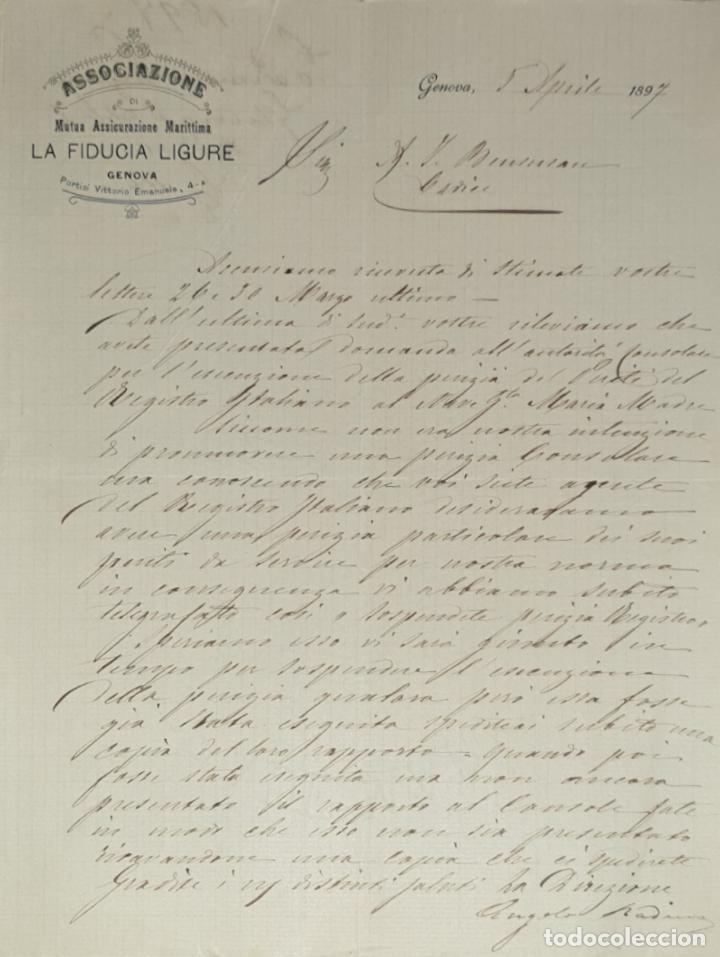 ASSOCIAZIONE
DI
Mutua Assicurazione Marittima
LA FIDUCIA LIGURE
GENOVA
Portici Vittorio Emanuele, 4-4
Genova, 5 Aprile 1897
A. J. Bensusan
Cadice
Accusiamo ricevuta di stimate vostre
lettere 26 e 30 Marzo ultimo —
Dall'ultima di sudᵉ vostre rileviamo che
avete presentata domanda all'autorità Consolare
per l'esecuzione della perizia dei Periti del
Registro Italiano al Nave Gᵗᵃ Maria Madre
Siccome non era nostra intenzione
di promuovere una perizia Consolare
ma conoscendo che voi siete agente
del Registro Italiano desideravamo
avere una perizia particolare dei suoi
periti da servire per nostra norma
in conseguenza vi abbiamo subito
telegrafatto così " sospendete perizia Registro"
Speriamo esso vi sarà giunto in
tempo per sospendere l'esecuzione
della perizia qualora però essa fosse
già stata eseguita subito una
copia del loro rapporto - Quando poi
fosse stata eseguita ma non ancora
presentato il rapporto al Console fate
in modo che esso non sia presentato
ricavandone una copia che ci spedirete
Gradite i distinti saluti La Direzione
Angelo
todocoleccion.net